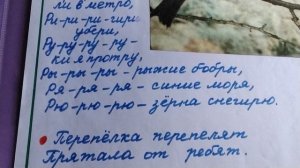 ли в метро,
Ри-ри-ри-гири
убери,
Ру-ру-ру-ру-
ки я протру,
Ры-ры-ры-рыжие бобры,
Ря-ря-ря-синие моря,
Рю-рю-рю-зёрна снегирю.
Перепёлка перепелят
Прятала от ребят.